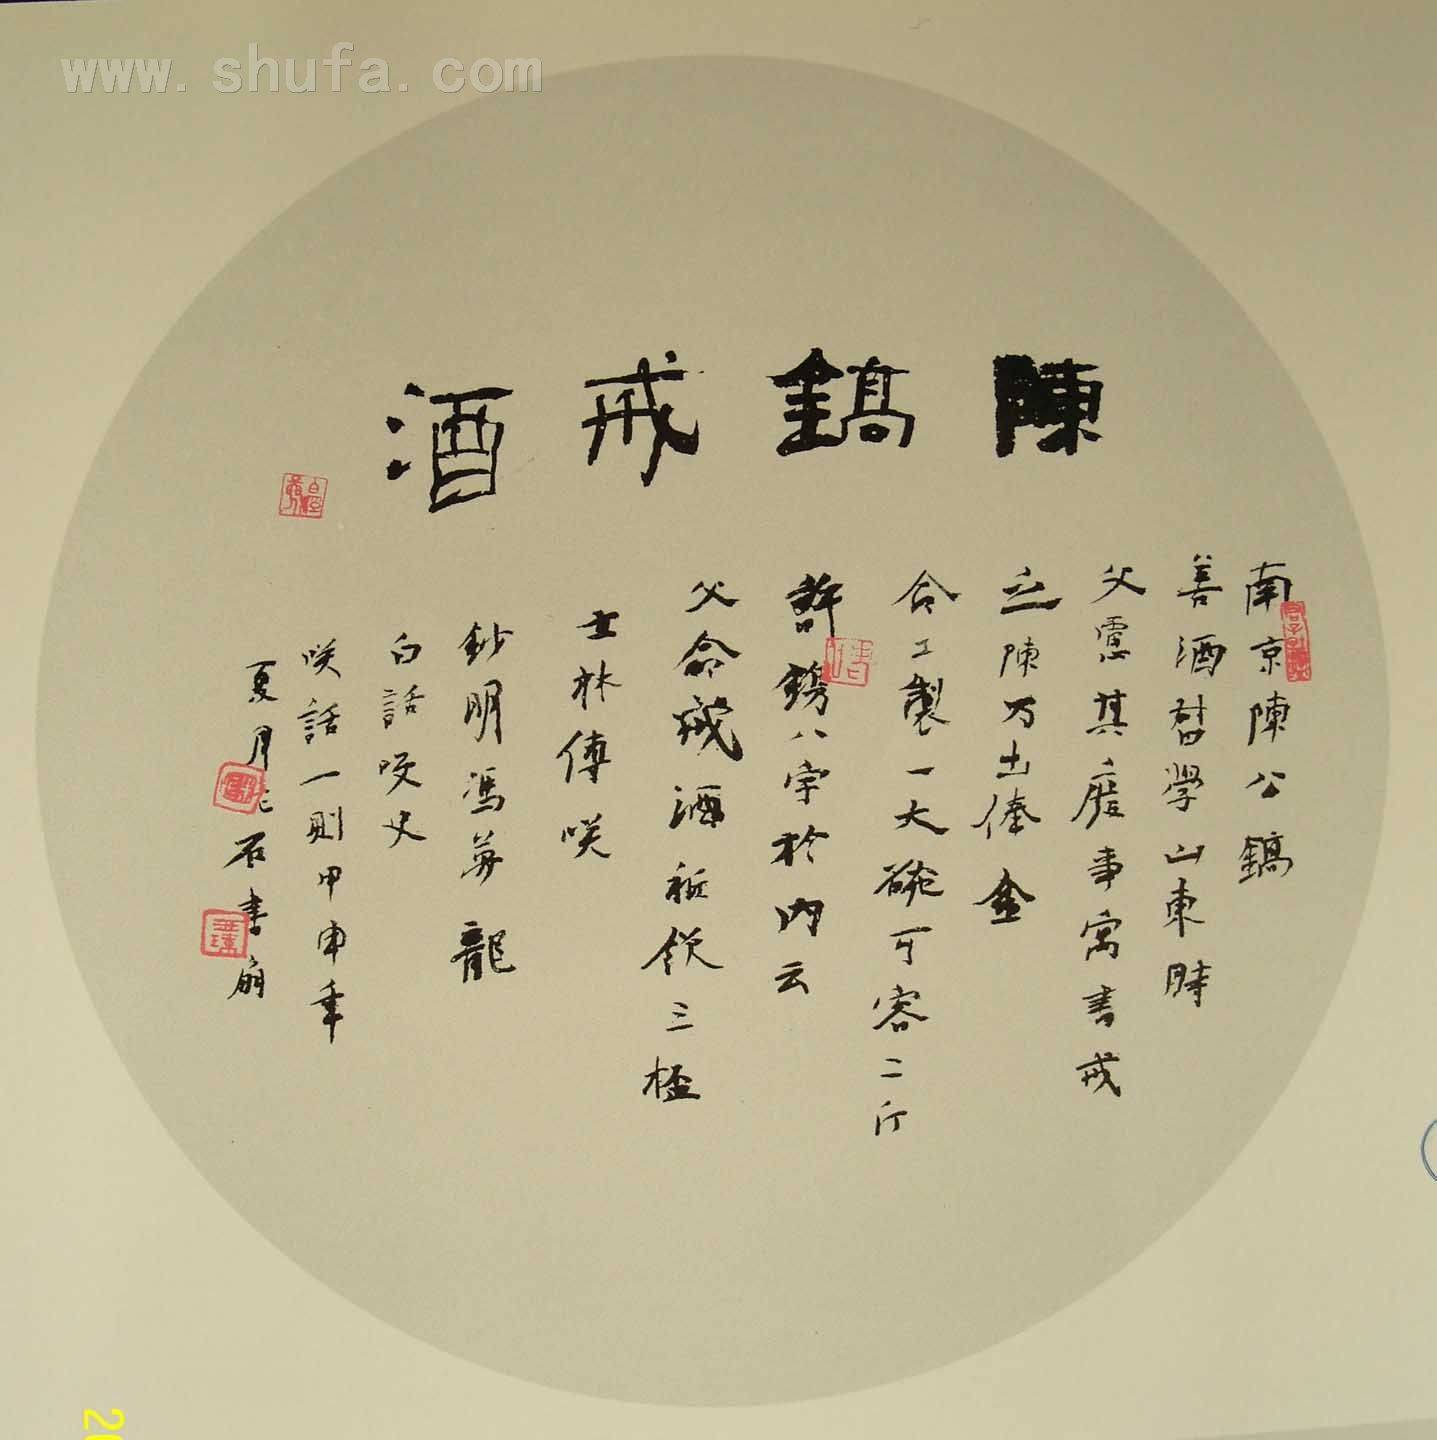 www.shufa.com
陳鎬戒酒
南京陳公鎬
善酒督學山東時
父慮其廢事寓書戒
之陳乃出俸金
命工製一大碗可容二斤
許鐫八字於內云
父命戒酒祗飲三杯
士林傳咲
鈔明馮夢龍
白話咲史
咲話一則甲申年
夏月石書扇
20